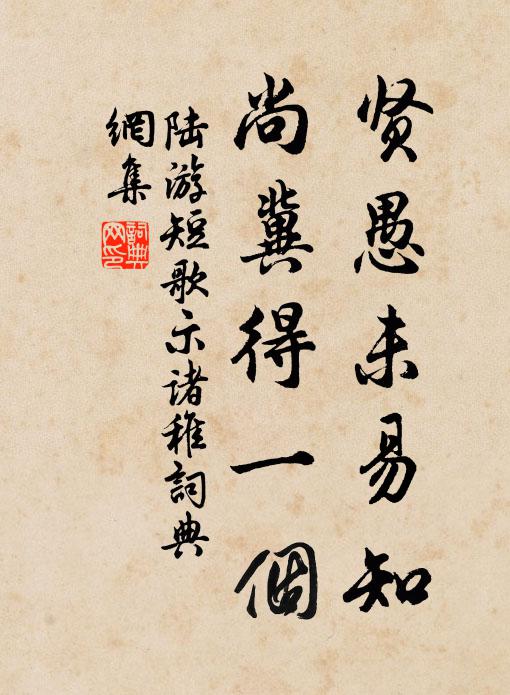 贤愚未易知
尚冀得一個
陆游短歌示诸稚詞典
網集
詞典
网印